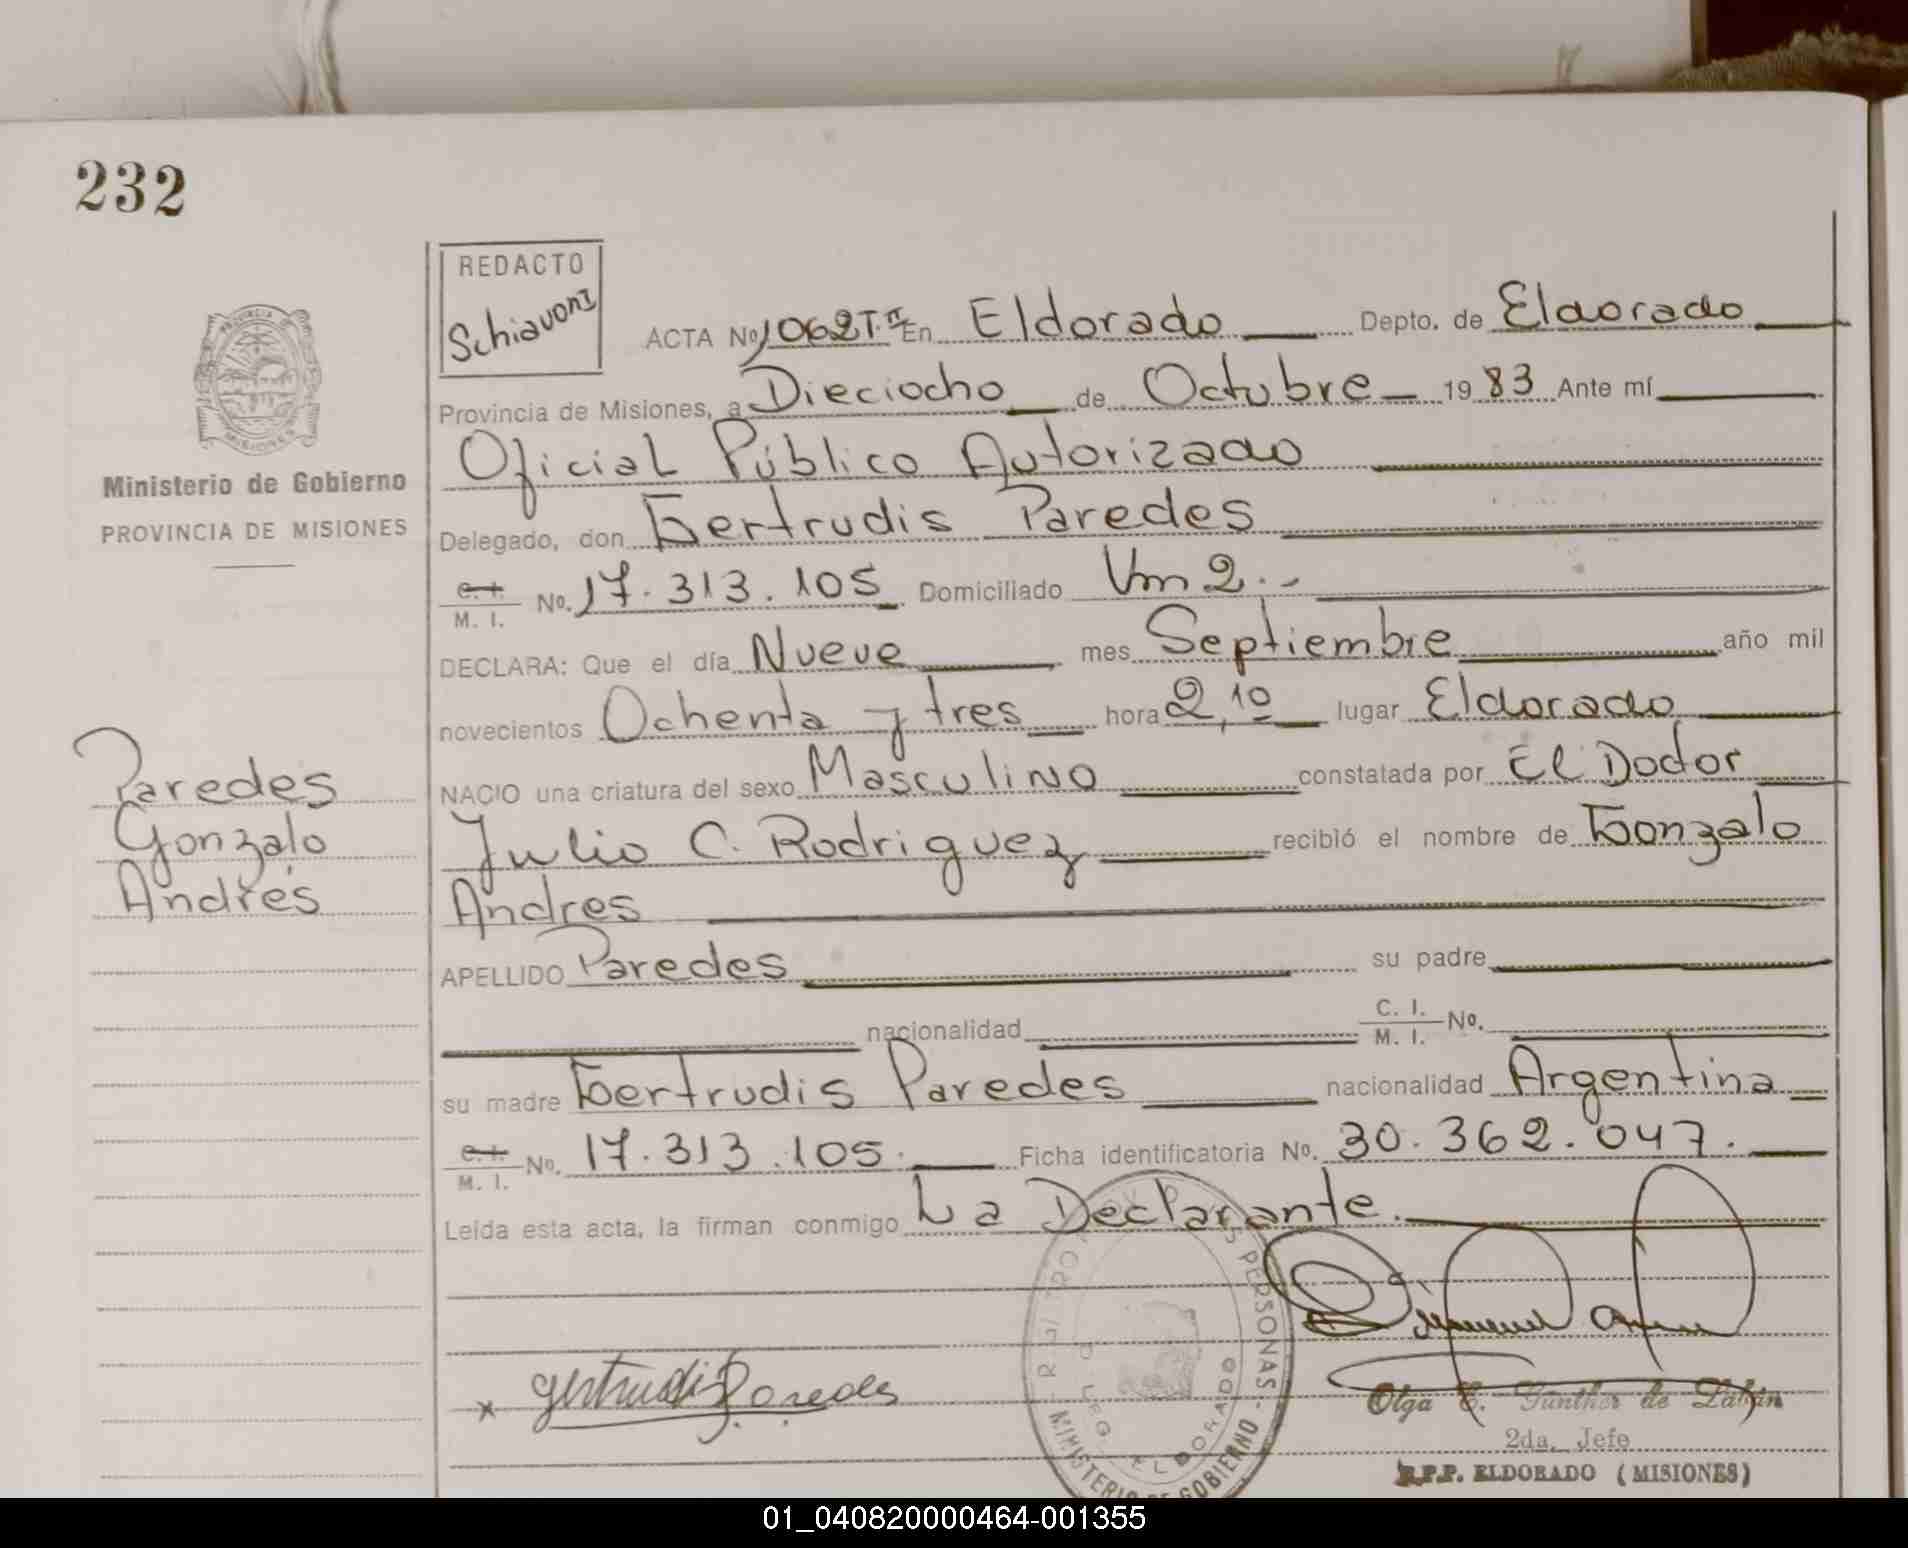 232
REDACTO
Schiavoni
PROVINCIA DE
MISIONES
Ministerio de Gobierno
PROVINCIA DE MISIONES
ACTA No. 1062 T.II En Eldorado Depto. de Eldorado
Provincia de Misiones, a Dieciocho de Octubre 1983 Ante mí
Oficial Público Autorizado
Delegado, don Gertrudis Paredes
C. I. M. I. No. 17.313.105 Domiciliado Km 2.-
DECLARA: Que el día Nueve mes Septiembre año mil
novecientos Ochenta y tres hora 2,10 lugar Eldorado
NACIO una criatura del sexo Masculino constatada por El Doctor
Julio C. Rodriguez recibió el nombre de Gonzalo
Andres
Paredes
Gonzalo
Andrés
APELLIDO Paredes su padre
nacionalidad C. I. M. I. No.
su madre Gertrudis Paredes nacionalidad Argentina
C. I. M. I. No. 17.313.105. Ficha identificatoria No. 30.362.047.
Leída esta acta, la firman conmigo La Declarante.
x Gertrudis Paredes
PERSONAS
MINISTERIO DE GOBIERNO
ELDORADO
Olga E. Günther de
2da. Jefe
R.P.P. ELDORADO (MISIONES)
01_040820000464-001355